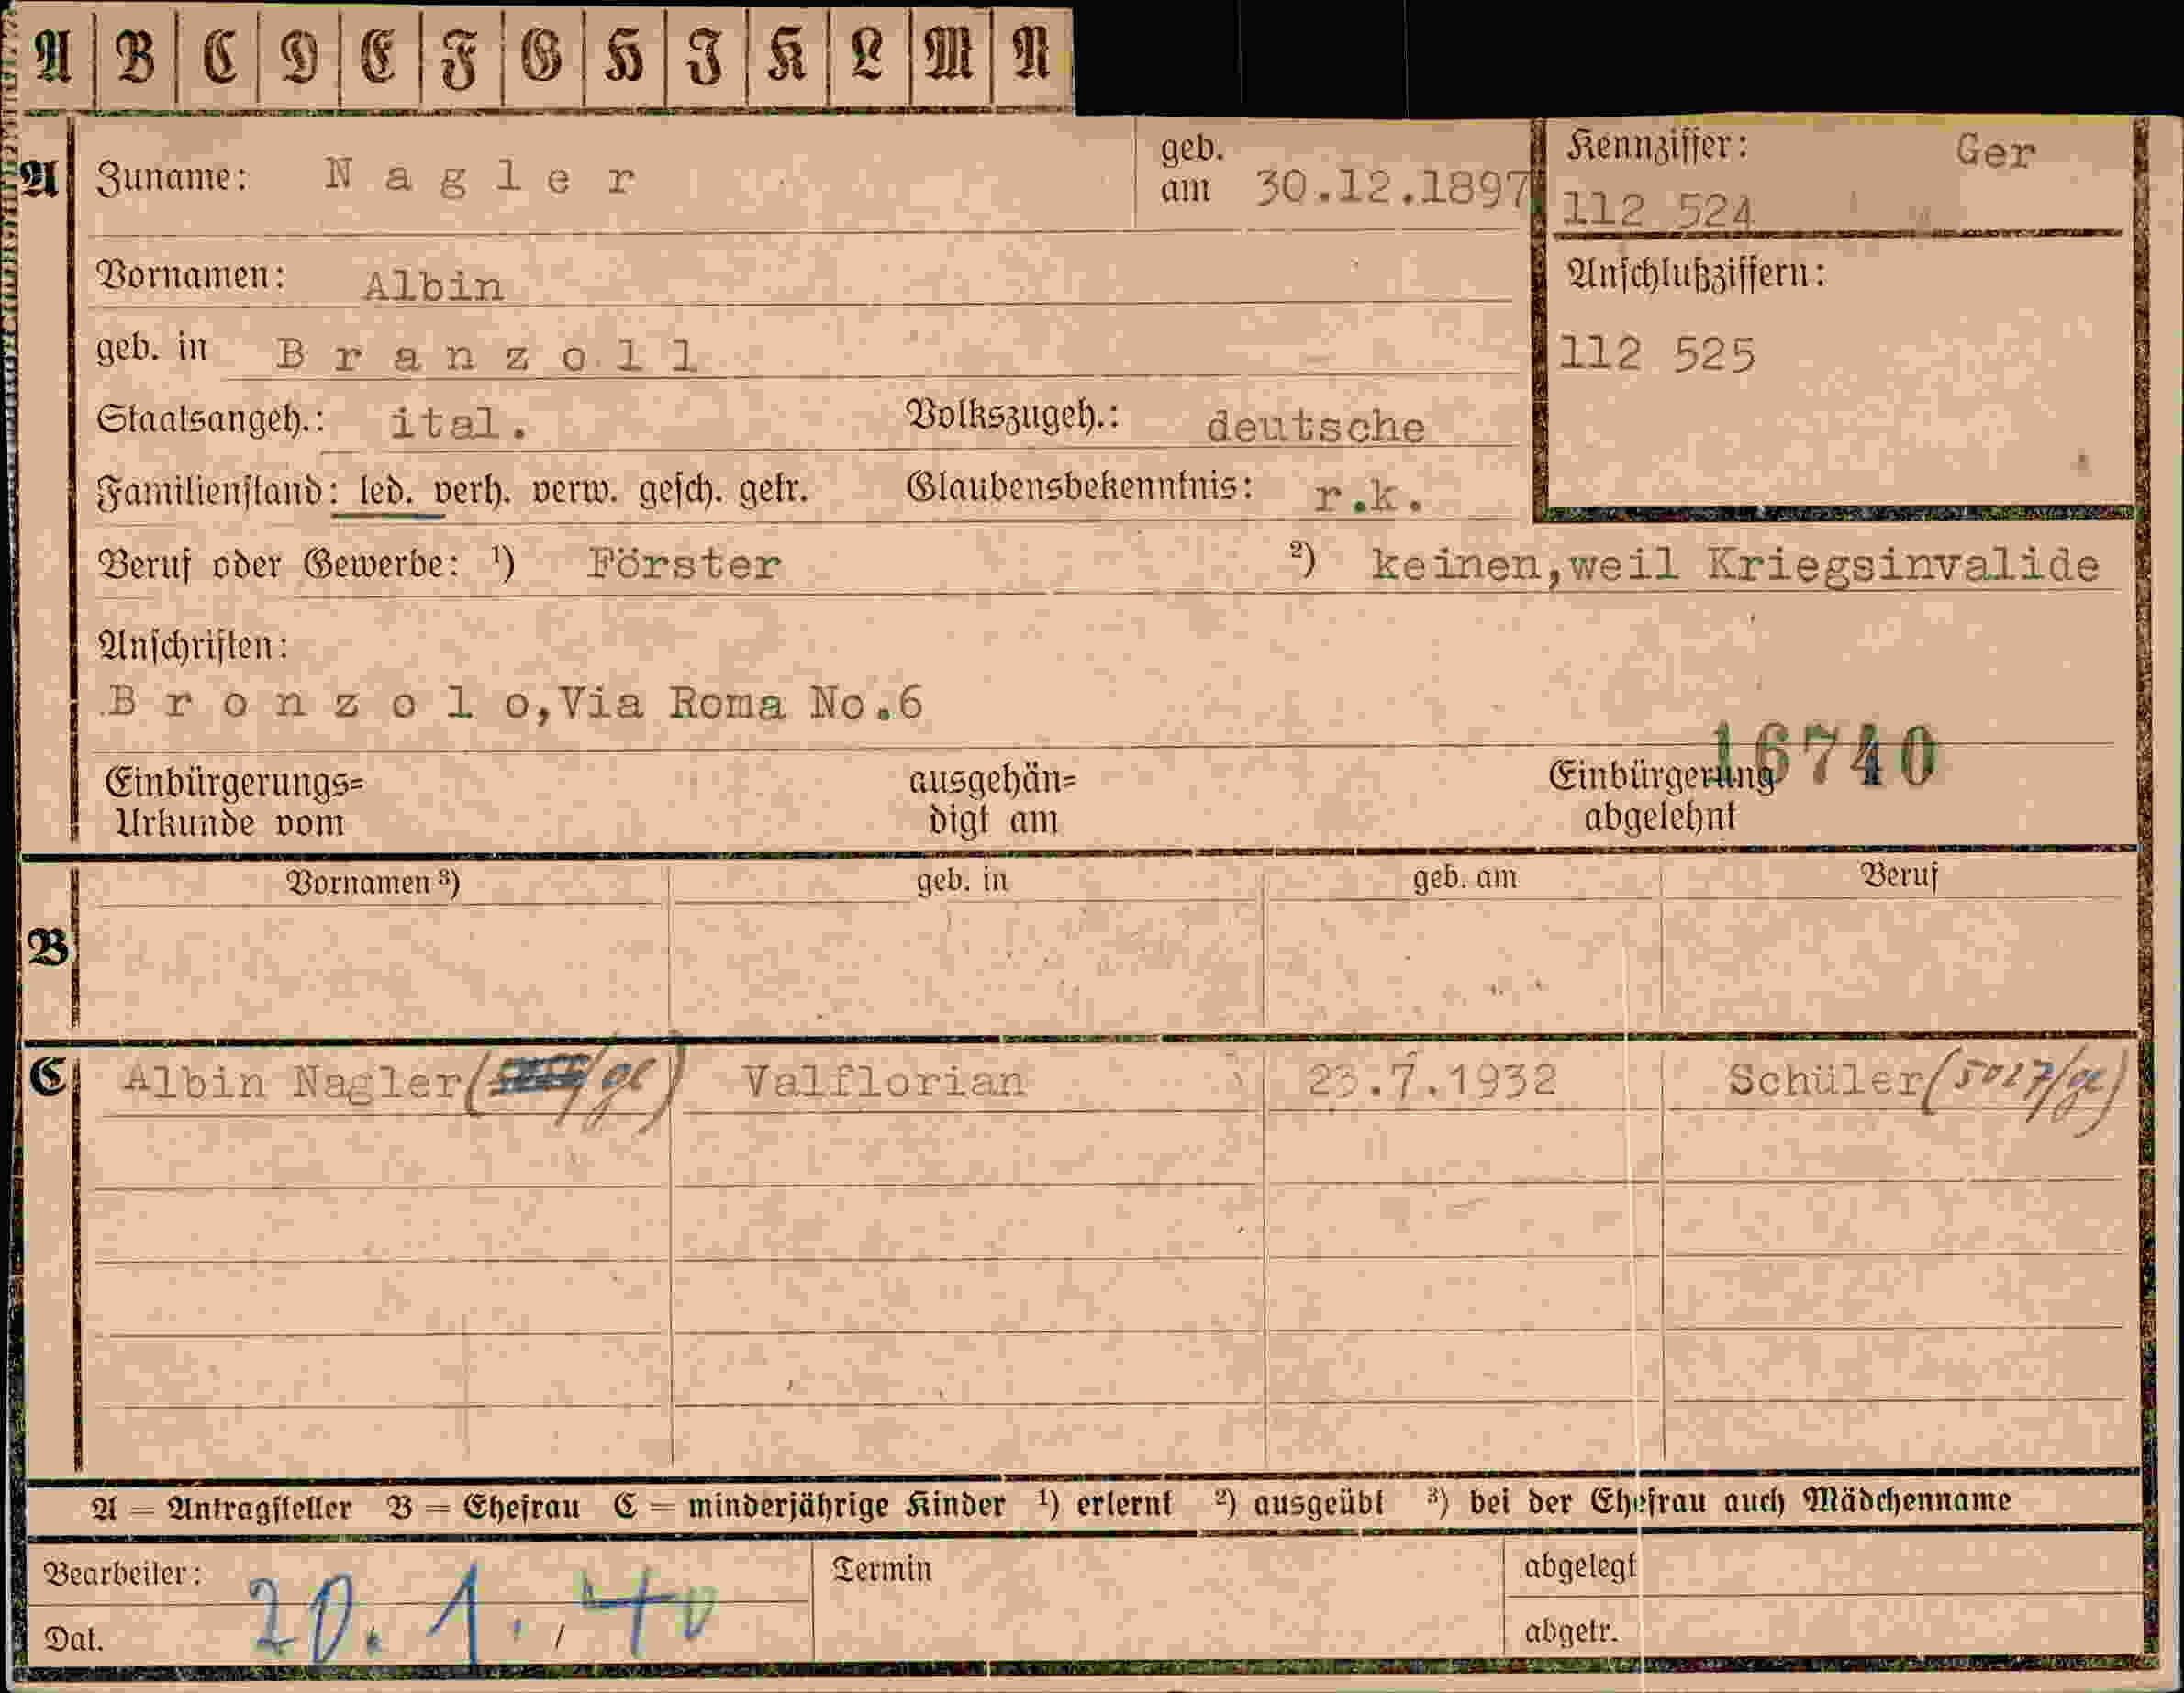 A B C D E F G H I K L M N
A Zuname: Nagler geb. am 30.12.1897
Kennziffer: Ger
112 524
Vornamen: Albin
Anschlußziffern:
geb. in Branzoll
112 525
Staatsangeh.: ital. Volkszugeh.: deutsche
Familienstand: led. verh. verw. gesch. getr. Glaubensbekenntnis: r.k.
Beruf oder Gewerbe: ¹) Förster ²) keinen,weil Kriegsinvalide
Anschriften:
Bronzolo,Via Roma No.6
16740
Einbürgerungs= ausgehän= Einbürgerung
Urkunde vom digt am abgelehnt
B Vornamen ³) geb. in geb. am Beruf
C Albin Nagler ( /ge) Valflorian 23.7.1932 Schüler (5027/ge)
A = Antragsteller B = Ehefrau C = minderjährige Kinder ¹) erlernt ²) ausgeübt ³) bei der Ehefrau auch Mädchenname
Bearbeiter: Termin abgelegt
Dat. 20.1.40 abgetr.